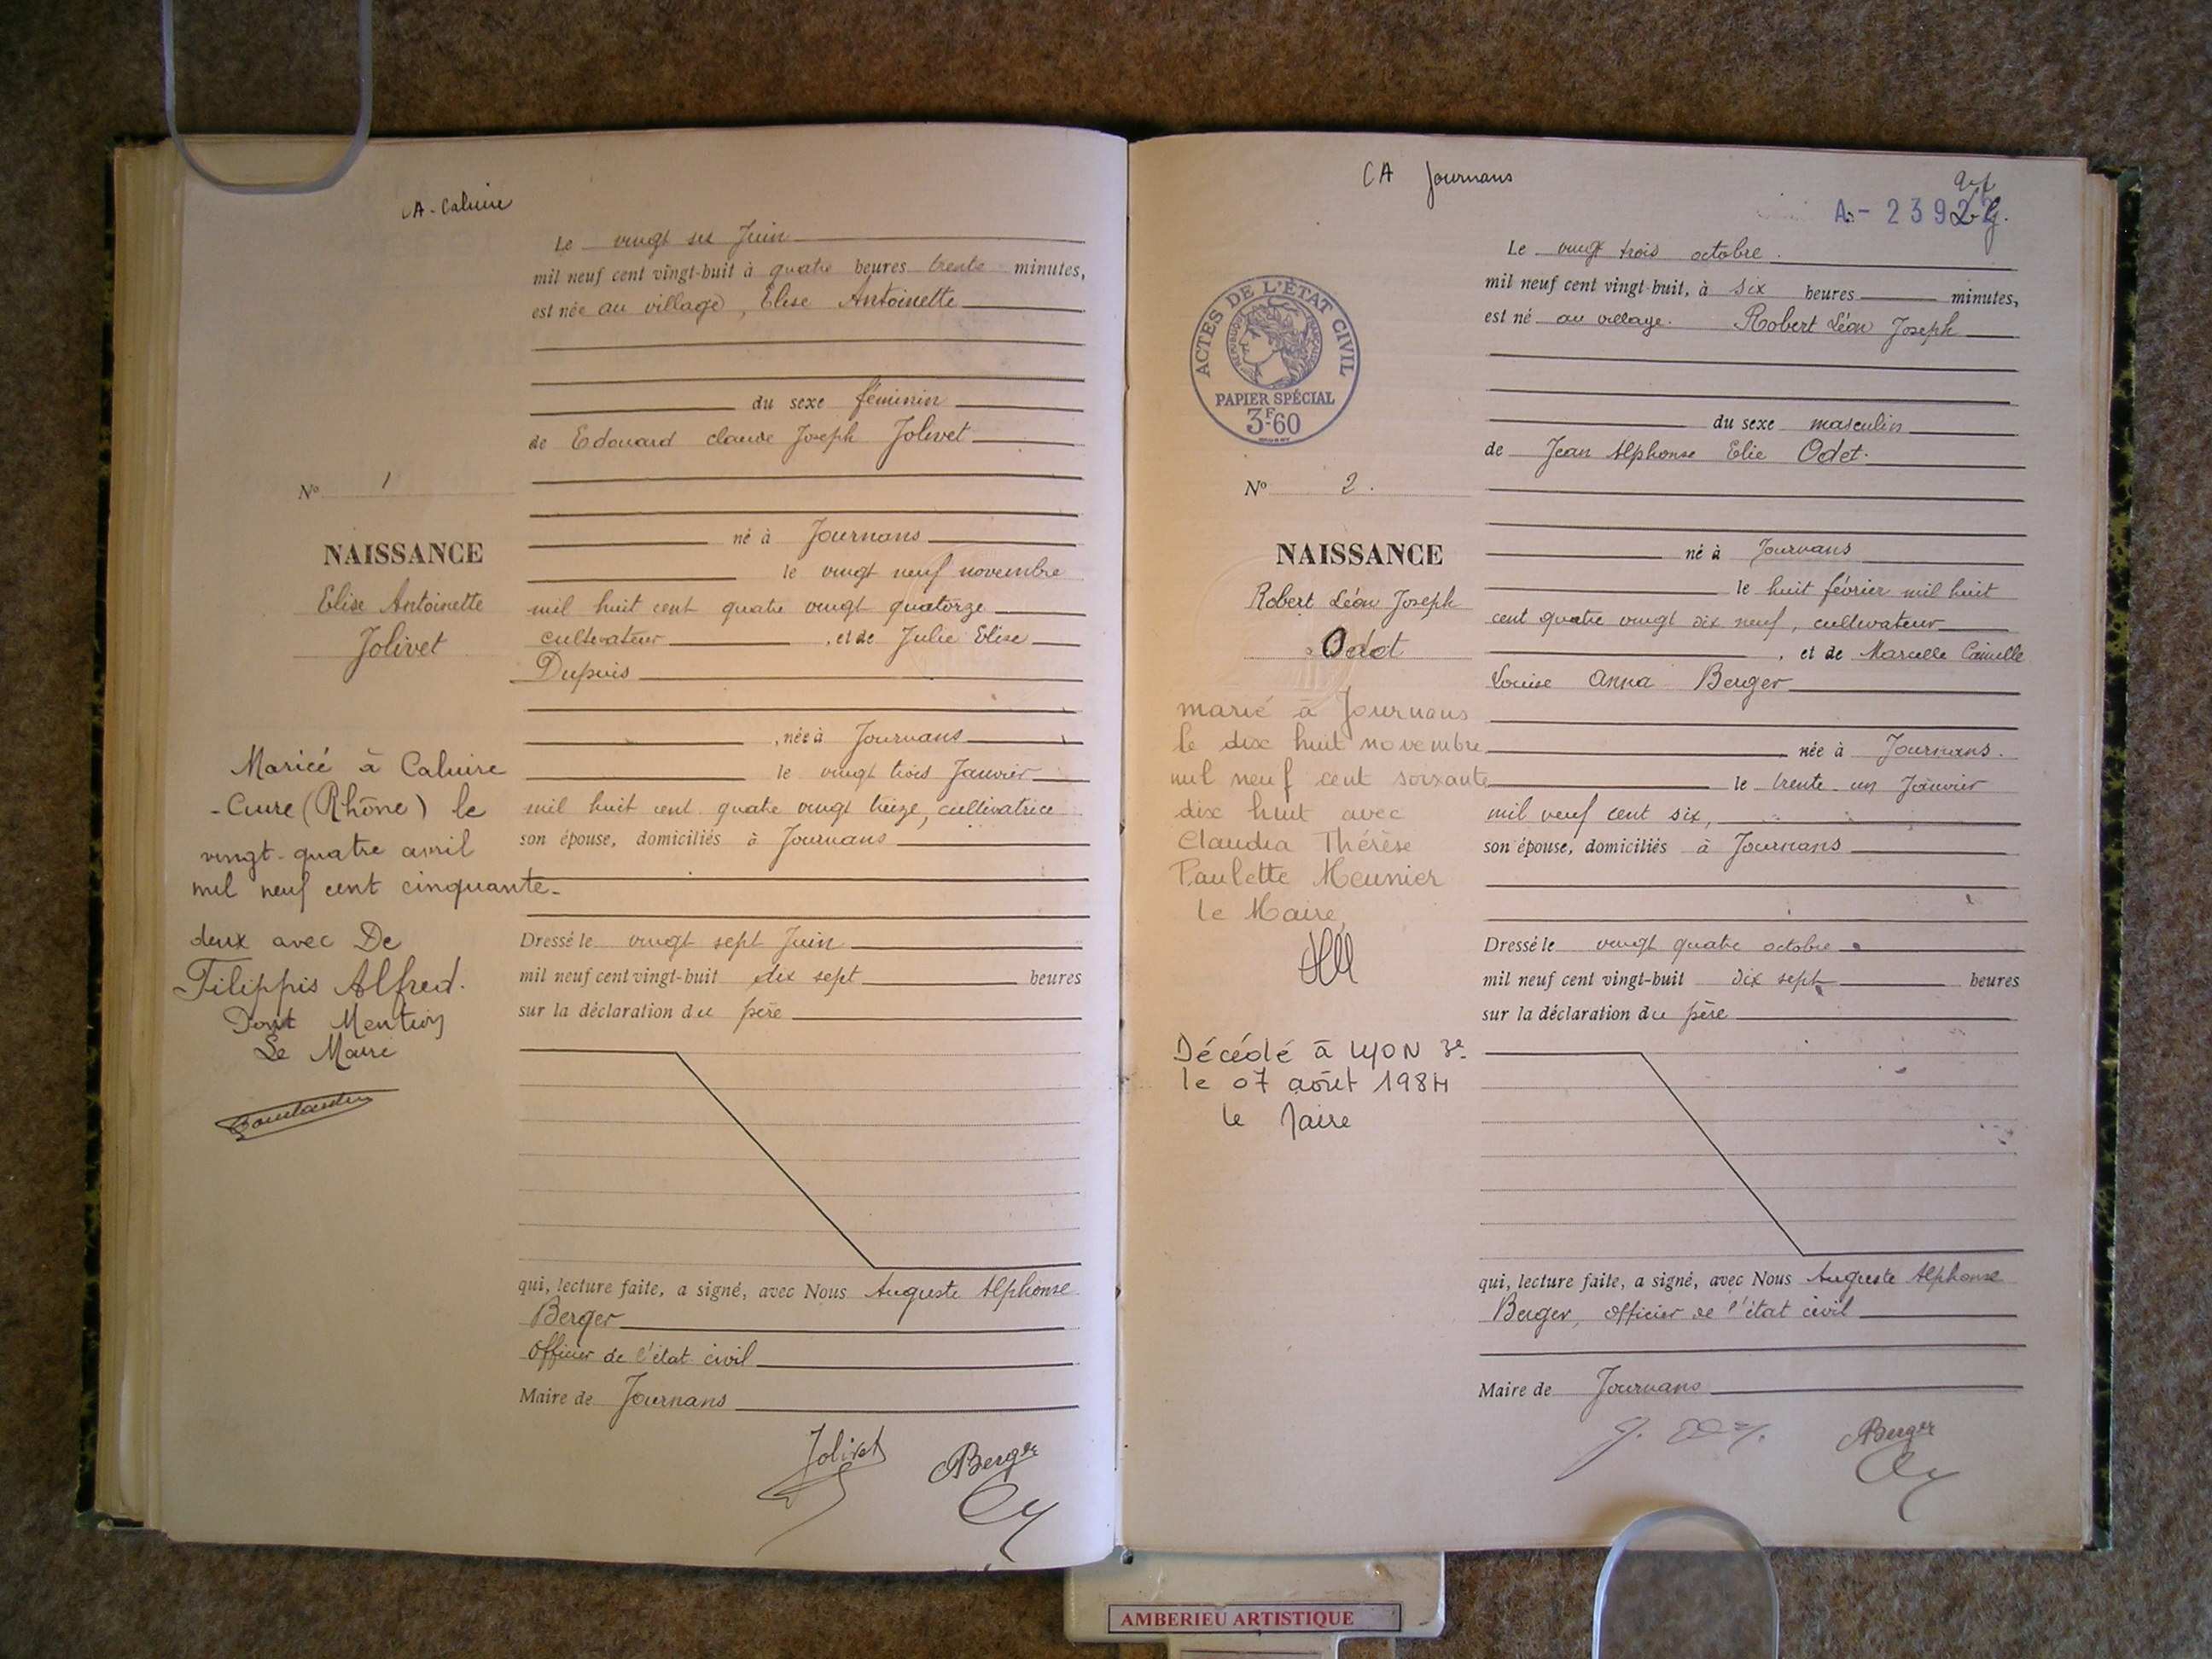 CA-Caluire
Le vingt six Juin
mil neuf cent vingt-huit à quatre heures trente minutes,
est née au village, Elise Antoinette
du sexe féminin
de Edouard claude Joseph Jolivet
N° 1
né à Journans
NAISSANCE
le vingt neuf novembre
Elise Antoinette
mil huit cent quatre vingt quatorze
Jolivet
cultivateur, et de Julie Elise
Dupuis
, née à Journans
le vingt trois Janvier
mil huit cent quatre vingt treize, cultivatrice
son épouse, domiciliés à Journans
Mariée à Caluire
-Cuire (Rhône) le
vingt-quatre avril
mil neuf cent cinquante-
deux avec De
Filippis Alfred.
Dont Mention
Le Maire
Dressé le vingt sept Juin
mil neuf cent vingt-huit dix sept heures
sur la déclaration du père
qui, lecture faite, a signé, avec Nous Auguste Alphonse
Berger
officier de l'état civil
Maire de Journans
Jolivet
ABerger
CA Journans
A.- 2392
Le vingt trois octobre.
mil neuf cent vingt-huit, à six heures minutes,
est né au village. Robert Léon Joseph
ACTES DE L'ÉTAT CIVIL
RÉPUBLIQUE FRANÇAISE
PAPIER SPÉCIAL
3F.60
du sexe masculin
de Jean Alphonse Elie Odet.
N° 2.
né à Journans
NAISSANCE
le huit février mil huit
Robert Léon Joseph
cent quatre vingt dix neuf, cultivateur
Odet
, et de Marcelle Camille
Louise Anna Berger
née à Journans.
le trente-un Janvier
mil neuf cent six,
son épouse, domiciliés à Journans
marié à Journans
le dix huit novembre
mil neuf cent soixante
dix huit avec
Claudia Thérèse
Paulette Meunier
le Maire,
Décédé à LYON 3e
le 07 août 1984
le Maire
Dressé le vingt quatre octobre
mil neuf cent vingt-huit dix sept heures
sur la déclaration du père
qui, lecture faite, a signé, avec Nous Auguste Alphonse
Berger, officier de l'état civil
Maire de Journans
ABerger
AMBERIEU ARTISTIQUE